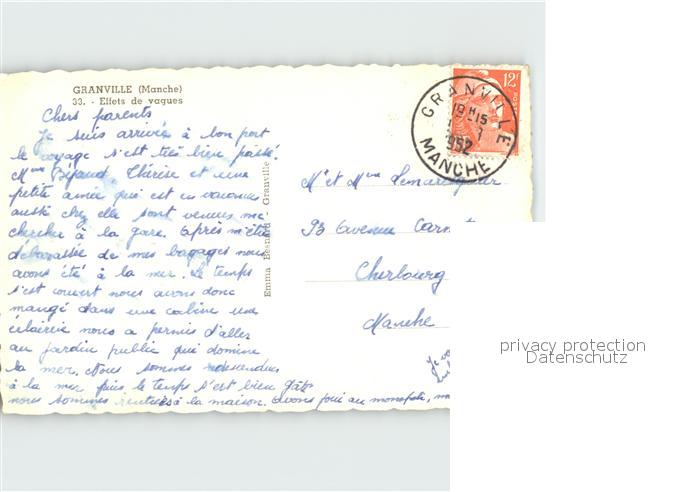 GRANVILLE (Manche)
33. - Effets de vagues
Chers parents
Je suis arrivée à bon port
le voyage s'est très bien passé.
Mme Thérèse et une
petite amie qui est en vacances
aussi chez elle sont venues me
chercher à la gare. Après m'être
débarassée de mes bagages nous
avons été à la mer. Le temps
s'est couvert nous avons donc
mangé dans une cabine une
éclaircie nous a permis d'aller
au jardin public qui domine
la mer. Nous sommes redescendus
à la mer puis le temps s'est bien gâté
nous sommes rentrées à la maison. Avons joué au monopole,
Emma Besnard - Granville
12F
GRANVILLE
19H15
1952
MANCHE
Mr et Mme
93 Avenue
Cherbourg
Manche
Je
privacy protection
Datenschutz